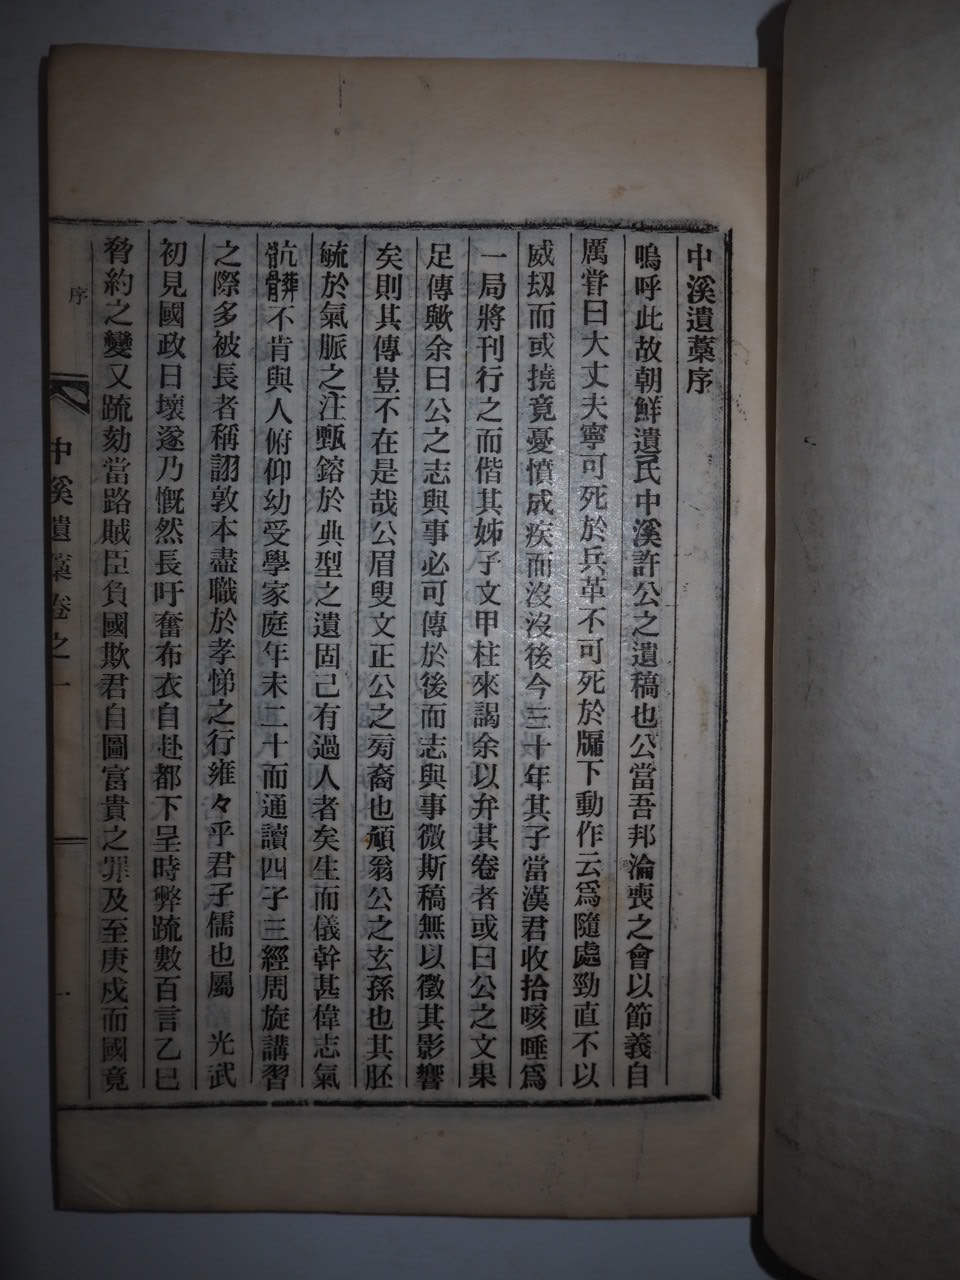 中溪遺藁序
嗚呼此故朝鮮遺民中溪許公之遺稿也公當吾邦淪喪之會以節義自
厲甞曰大丈夫寧可死於兵革不可死於牖下動作云爲隨處勁直不以
威刼而或撓竟憂憤成疾而沒沒後今三十年其子當漢君收拾咳唾爲
一局將刊行之而偕其姊子文甲柱來謁余以弁其卷者或曰公之文果
足傳歟余曰公之志與事必可傳於後而志與事微斯稿無以徵其影響
矣則其傳豈不在是哉公眉叟文正公之旁裔也顚翁公之玄孫也其胚
毓於氣脈之注甄鎔於典型之遺固己有過人者矣生而儀幹甚偉志氣
骯髒不肯與人俯仰幼受學家庭年未二十而通讀四子三經周旋講習
之際多被長者稱詡敦本盡職於孝悌之行雍々乎君子儒也屬 光武
初見國政日壞遂乃慨然長吁奮布衣自赴都下呈時弊疏數百言乙巳
脅約之變又疏劾當路賊臣負國欺君自圖富貴之罪及至庚戍而國竟
序
中溪遺藁卷之一
一